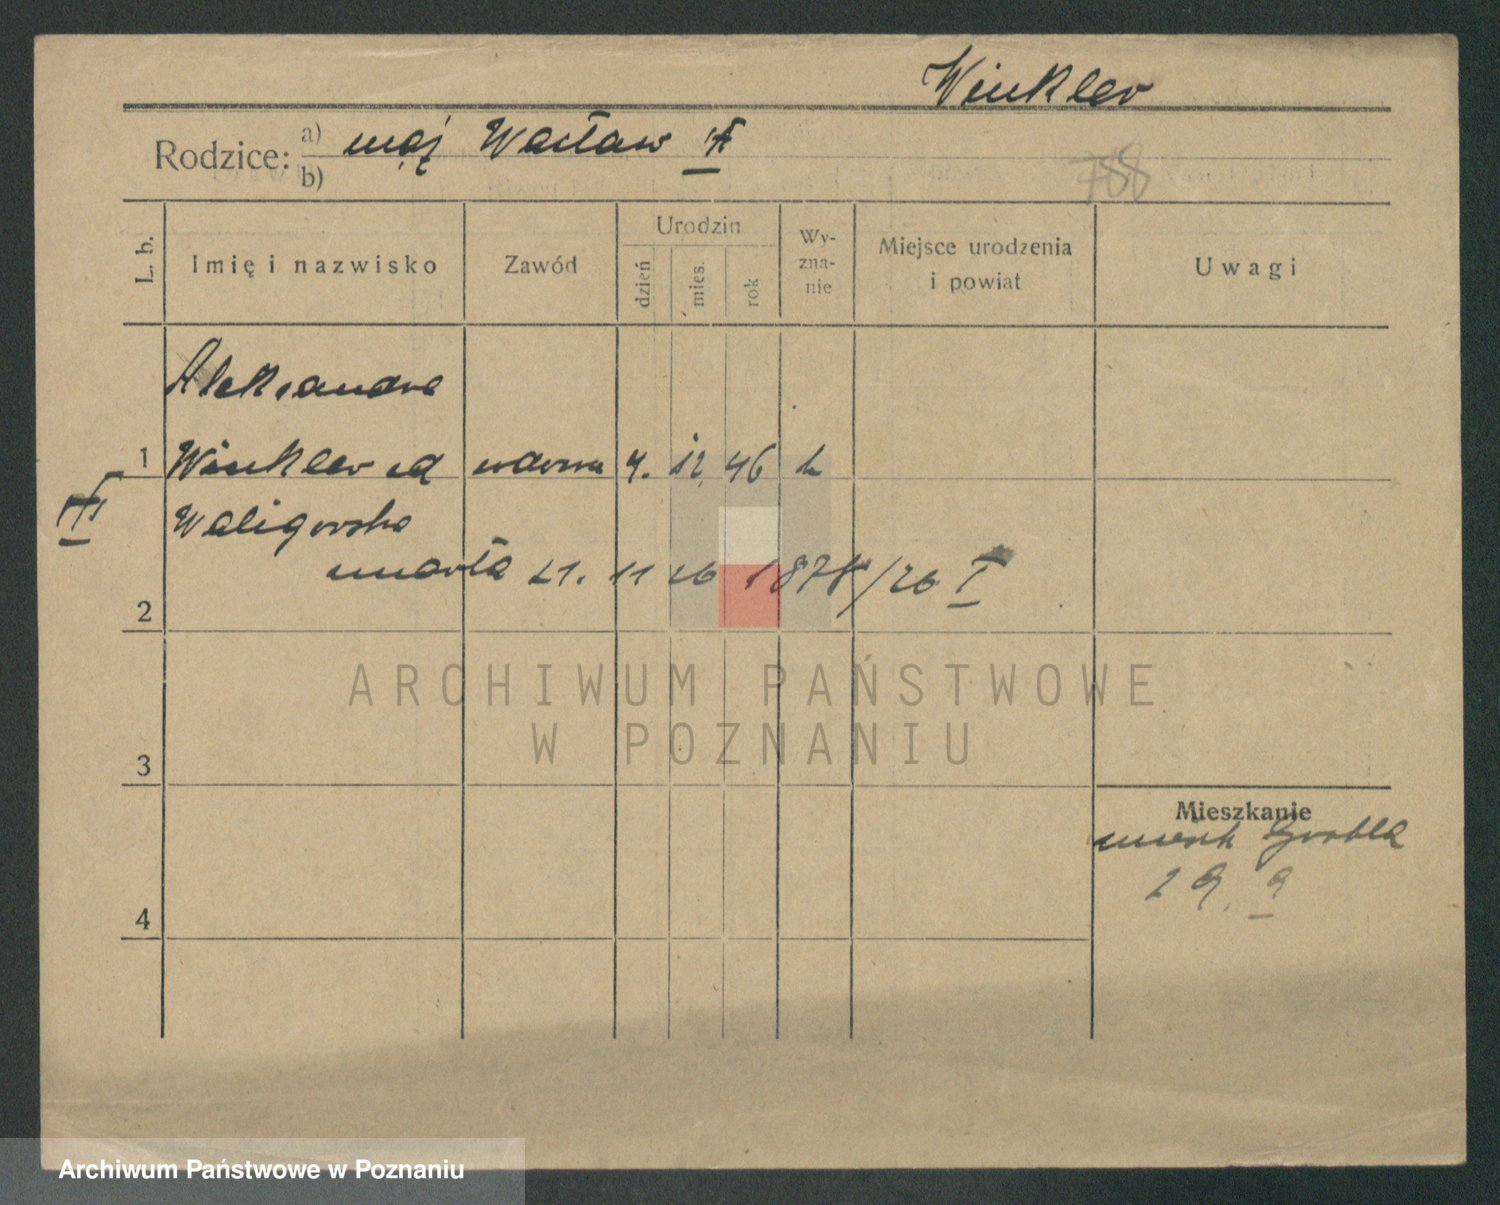 Winkler
Rodzice: a) mąż Wacław
b)
788
L. b. Imię i nazwisko Zawód Urodzin dzień mies. rok Wy-zna-nie Miejsce urodzenia i powiat Uwagi
Aleksandra
1 Winkler wdowa 4. 12 46 k
III Waligorska
umarła 21. 11 26 1878/26 I
2
ARCHIWUM PAŃSTWOWE
W POZNANIU
3
Mieszkanie
Grobla
29, 9
4
Archiwum Państwowe w Poznaniu